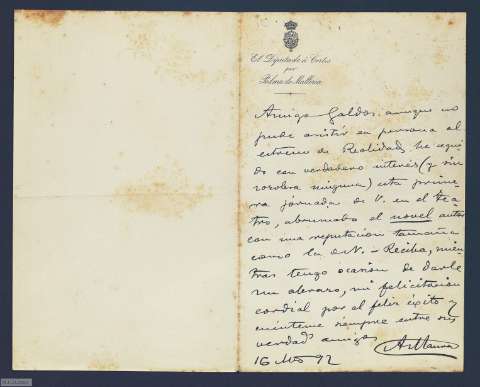 El Diputado á Cortes
por
Palma de Mallorca
Amigo Galdós: aunque no
pude asistir en persona al
estreno de Realidad, he segui
do con verdadero interés (y sin
zozobra ninguna) esta prime
ra jornada de V. en el tea
tro, abrumado el novel autor
con una reputación tamaña
como la de V. – Reciba, mien
tras tengo ocasión de darle
un abrazo, mi felicitación
cordial por el feliz éxito y
cuénteme siempre entre sus
verdads amigos
AMaura
16 Mzo 92